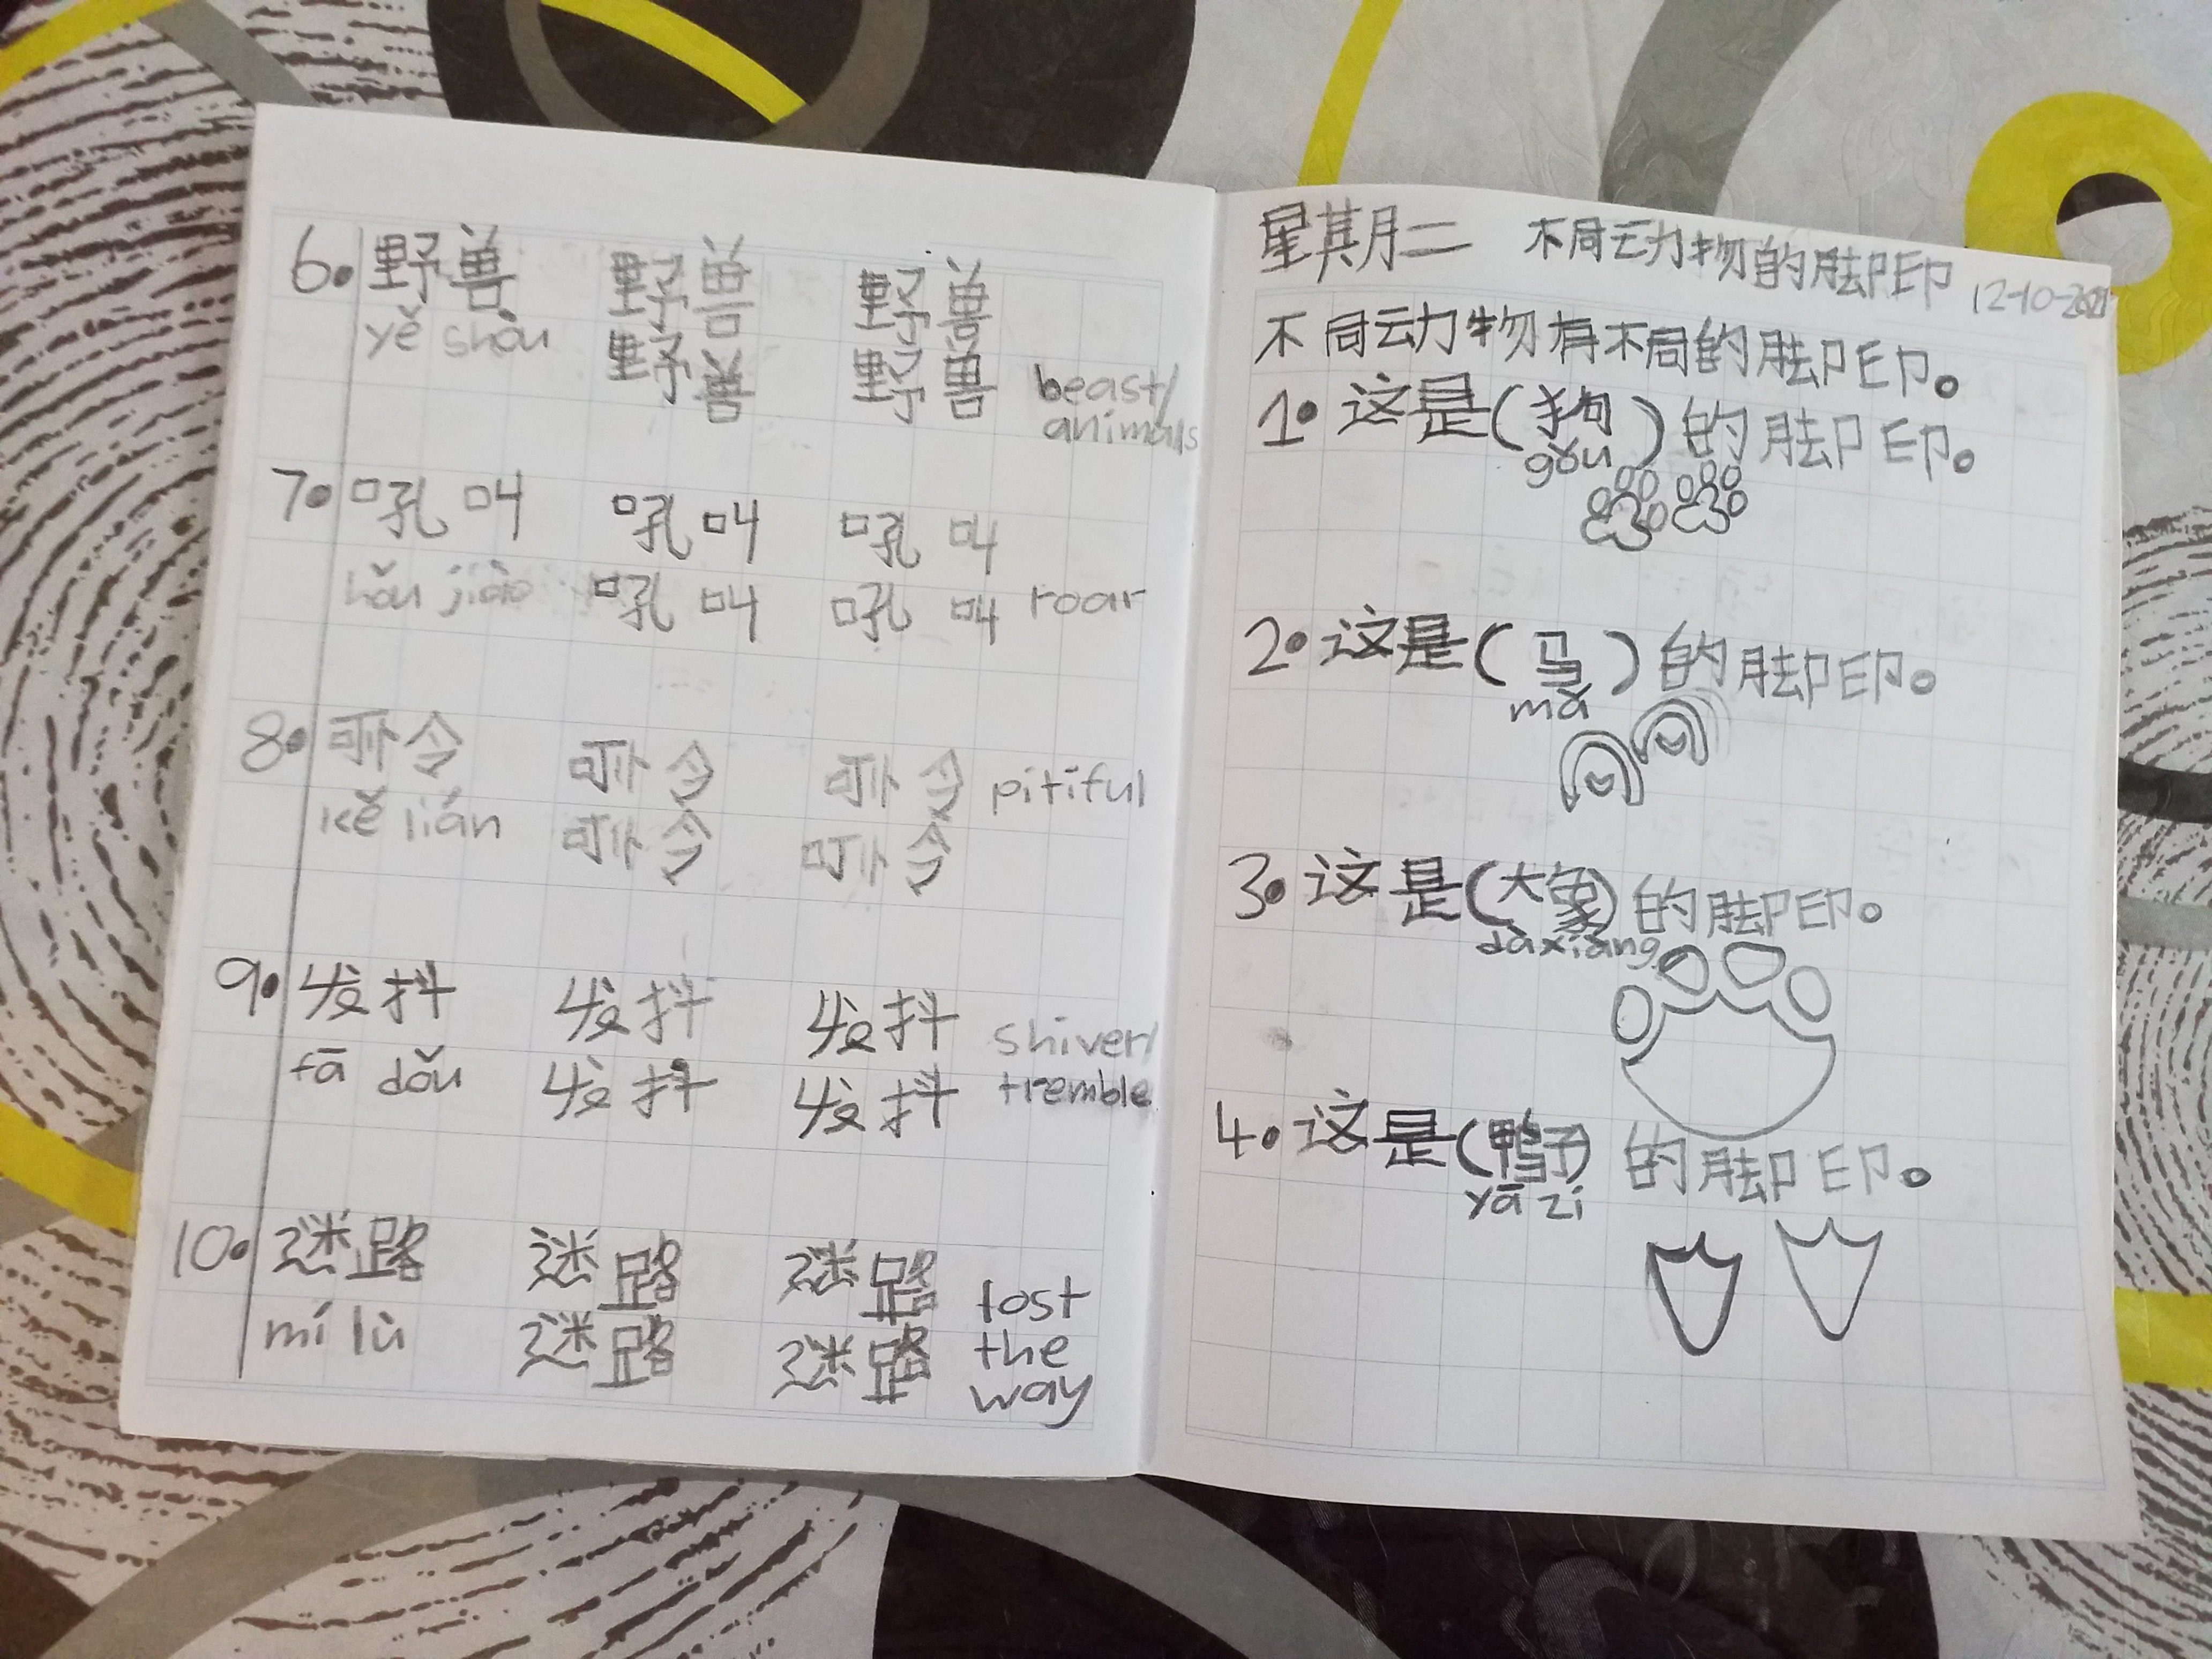 6. 野兽 野兽 野兽
yě shòu 野兽 野兽 beast/
animals
7. 吼叫 吼叫 吼叫
hǒu jiào 吼叫 吼叫 roar
8. 可怜 可怜 可怜 pitiful
kě lián 可怜 可怜
9. 发抖 发抖 发抖 shiver/
fā dǒu 发抖 发抖 tremble
10. 迷路 迷路 迷路 lost
mí lù 迷路 迷路 the
way
星期二 不同动物的脚印 12-10-2021
不同动物有不同的脚印。
1. 这是(狗)的脚印。
gǒu
2. 这是(马)的脚印。
mǎ
3. 这是(大象)的脚印。
dàxiàng
4. 这是(鸭子)的脚印。
yā zi